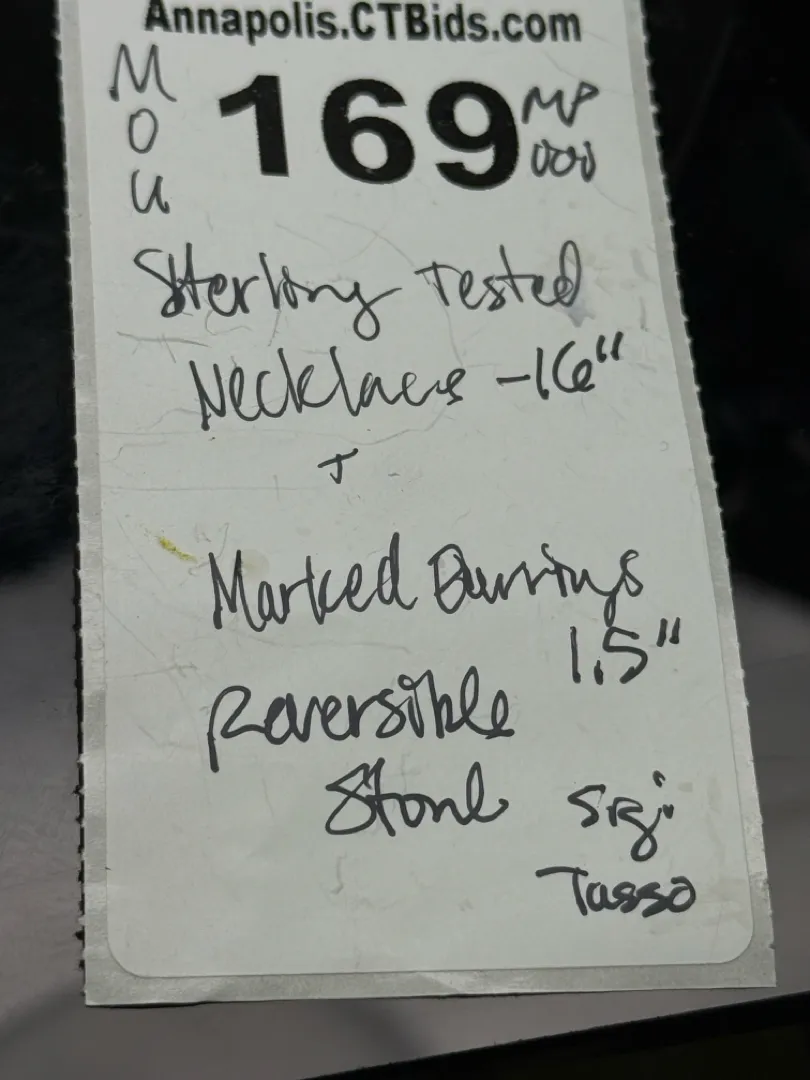 Annapolis.CTBids.com
MOU
169
MP
000
Sterling Tested
Necklace -16"
+
Marked Earrings
1.5"
Reversible
Stone
Sig:
Tasso